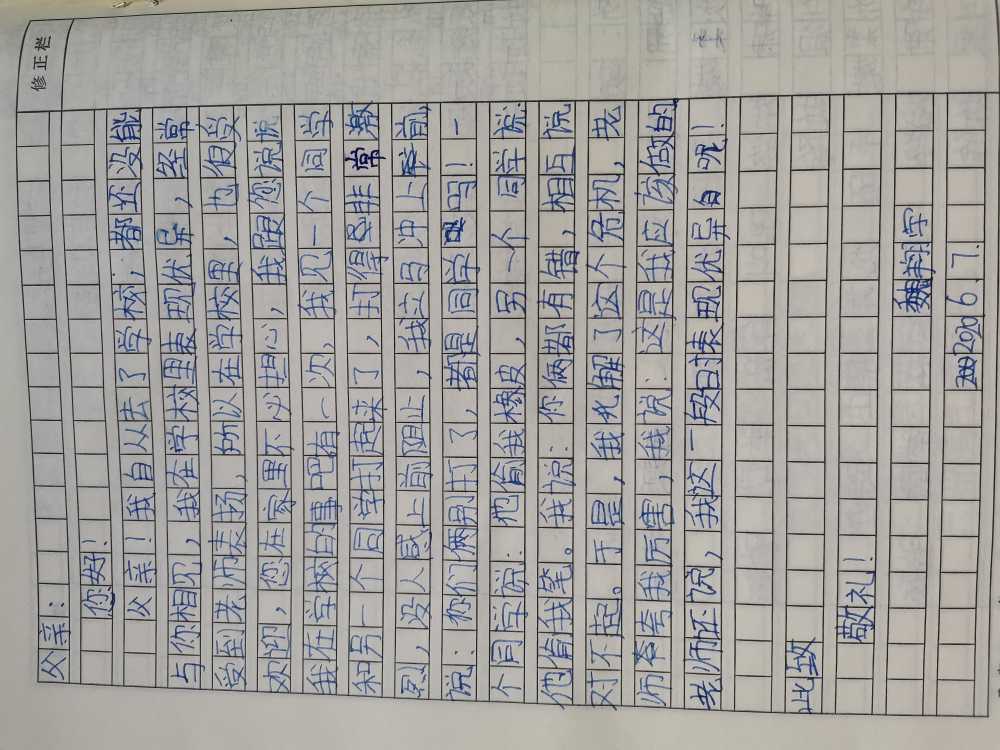 修正栏
父亲：
您好！
父亲！我自从去了学校，都还没能
与你相见，我在学校里表现优异，经常
受到老师表扬，所以在学校里，也很受
欢迎，您在家里不必担心，我跟您说说
我在学校的事吧有一次，我见一个同学
和另一个同学打起来了，打得是非常激
烈，没人感上前阻止，我立马冲上前，
说：你们俩别打了，都是同学吗！一
个同学说：他偷我橡皮，另一个同学说：
他偷我笔。我说：你俩都有错，相互说
对不起。于是，我化解了这个危机，老
师夸我厉害，我说：这是我应该做的
老师还说，我这一段日表现优异自呢！
此致
敬礼！
2020 6 7.